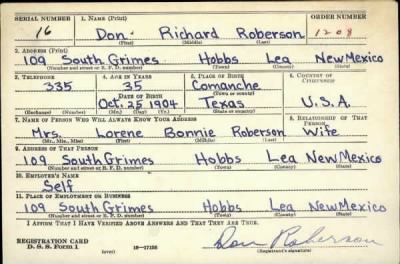 SERIAL NUMBER 1. NAME (Print) ORDER NUMBER
16 Don Richard Roberson 1208
(First) (Middle) (Last)
2. ADDRESS (Print)
109 South Grimes Hobbs Lea New Mexico
(Number and street or R. F. D. number) (Town) (County) (State)
3. TELEPHONE 4. AGE IN YEARS 5. PLACE OF BIRTH 6. COUNTRY OF CITIZENSHIP
335 35 Comanche
DATE OF BIRTH (Town or county)
Oct. 25 1904 Texas U.S.A.
(Exchange) (Number) (Mo.) (Day) (Yr.) (State or country)
7. NAME OF PERSON WHO WILL ALWAYS KNOW YOUR ADDRESS 8. RELATIONSHIP OF THAT PERSON
Mrs. Lorene Bonnie Roberson Wife
(Mr., Mrs., Miss) (First) (Middle) (Last)
9. ADDRESS OF THAT PERSON
109 South Grimes Hobbs Lea New Mexico
(Number and street or R. F. D. number) (Town) (County) (State)
10. EMPLOYER'S NAME
Self
11. PLACE OF EMPLOYMENT OR BUSINESS
109 South Grimes Hobbs Lea New Mexico
(Number and street or R. F. D. number) (Town) (County) (State)
I AFFIRM THAT I HAVE VERIFIED ABOVE ANSWERS AND THAT THEY ARE TRUE.
REGISTRATION CARD
D. S. S. Form 1 (over) 16—17105 Don Roberson
(Registrant's signature)